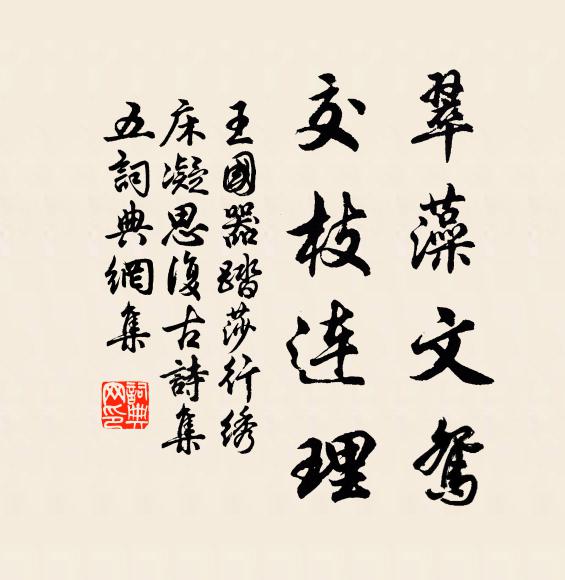 翠藻文鸳
交枝连理
王國器踏莎行绣
床凝思復古詩集
五詞典網集
詞典
网印